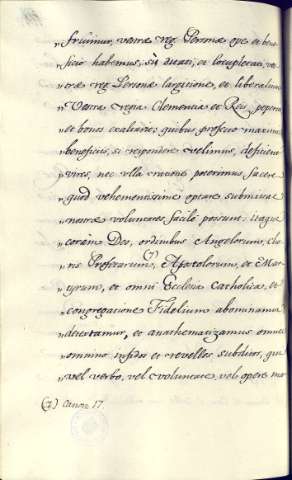 "fruimur, vestrae reg. Personae ope et bene-
"ficio habemus, sic ditati, et locupletati, ves-
"trae reg. Personae largitione, et liberalitate
"Vestra regia Clementia et Reis peperci
"et bonos exaltatis; quibus profecto maximis
"beneficiis, si respondere velimus, deficient
"vires, nec ulla ratione poterimus, facere
"quod vehementissime optare submissae
"nostrae voluntates facile possunt: itaque
"coram Deo, ordinibus Angelorum, cho-
"ris Profetarum, (7) Apostolorum, et Mar-
"tyrum, et omni Ecclesia Catholica, et
"congregatione Fidelium abominamur
"detestamur, et anathematizamus omnes
"omnino infidos et revelles subditos, qui
"vel verbo, vel voluntate, vel opere ma-
(7) Canon 17.